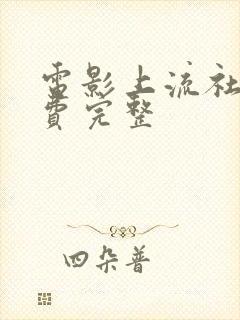 電影上流社
費完整
四朵普